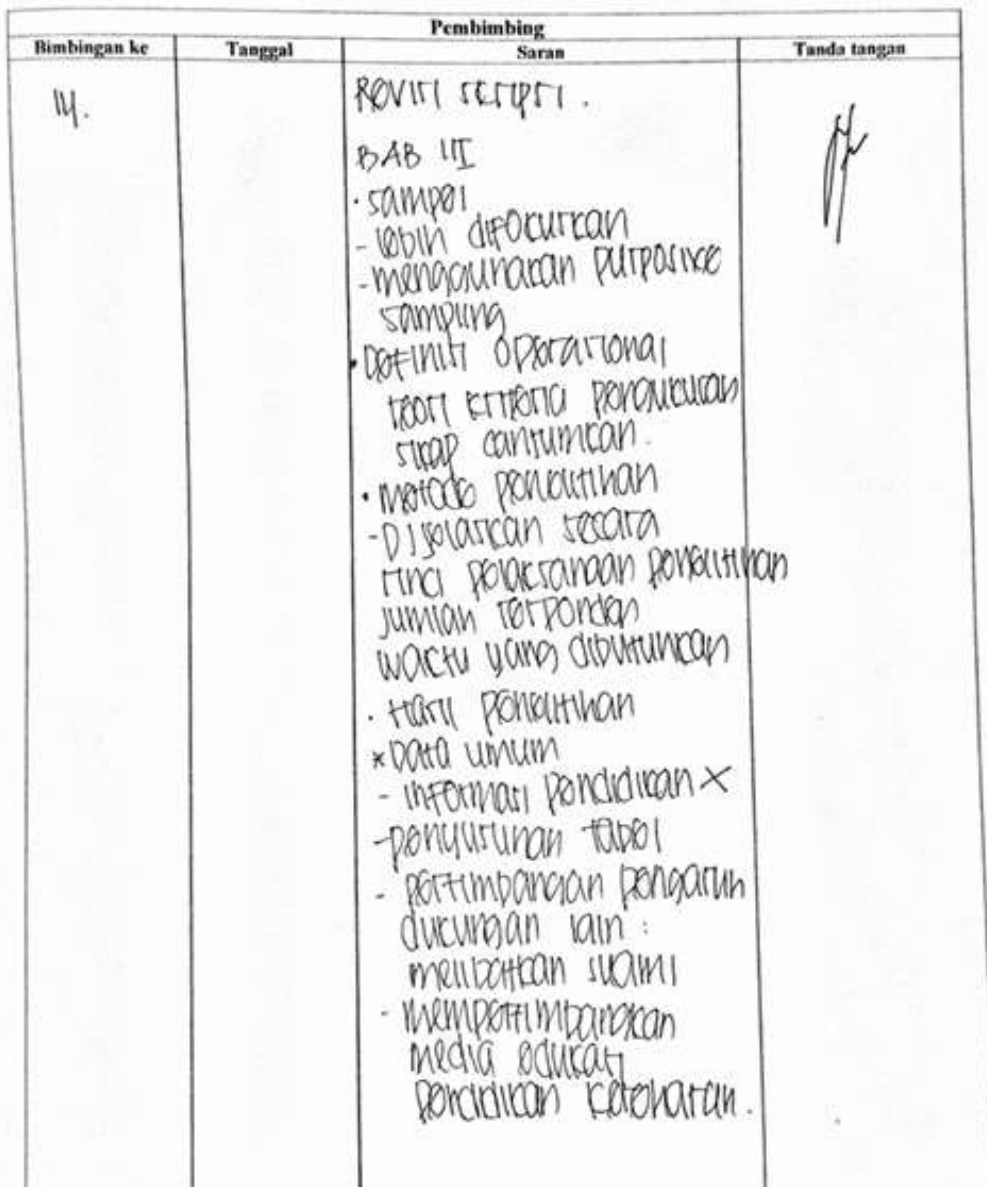 Pembimbing
Bimbingan ke Tanggal Saran Tanda tangan
14. Revisi skripsi.
BAB III
· sampel
- lebih difokuskan
- menggunakan purposive
sampling
· Definisi operasional
teori kriteria pengukuran
sikap cantumkan.
· metode penelitian
- Dijelaskan secara
rinci pelaksanaan penelitian
jumlah responden
waktu yang dibutuhkan
· Hasil penelitian
* Data umum
- informasi pendidikan X
- penyusunan tabel
- pertimbangan pengaruh
dukungan lain :
melibatkan suami
- mempertimbangkan
media edukasi
pendidikan kesehatan.